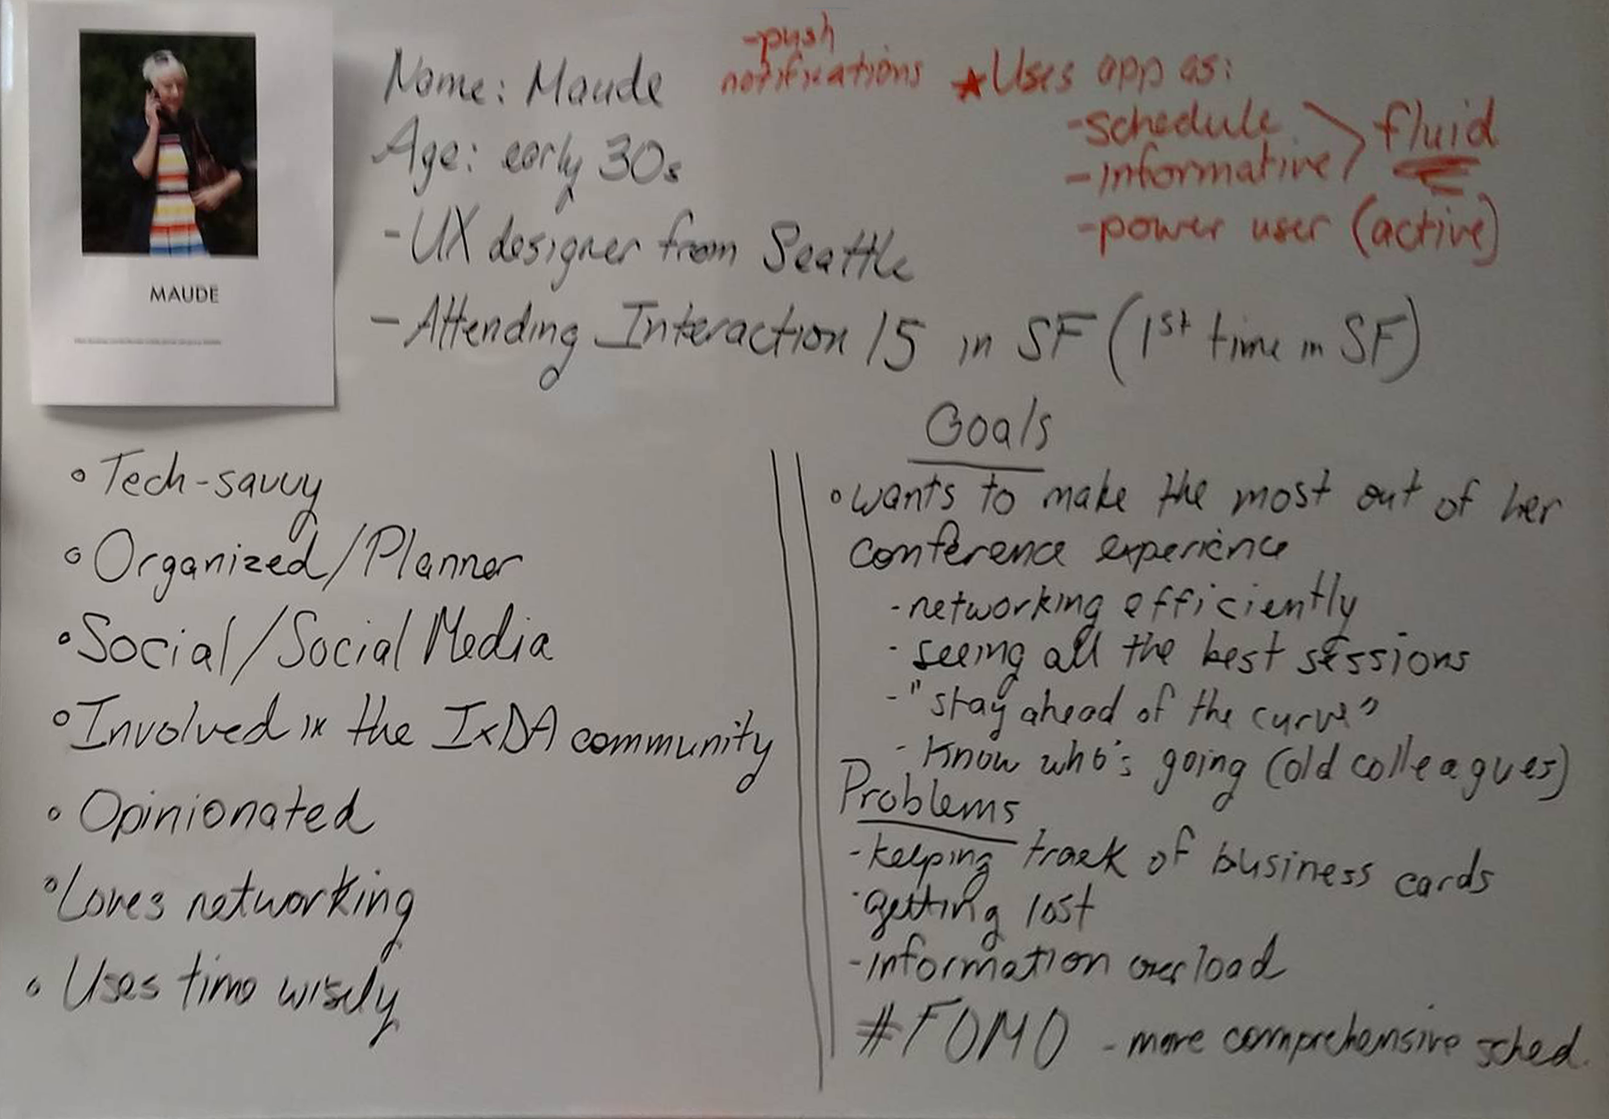 MAUDE
Name: Maude
Age: early 30s
- UX designer from Seattle
- Attending Interaction 15 in SF (1st time in SF)
-push
notifications
★Uses app as:
-schedule
-informative
fluid
-power user (active)
•Tech-savvy
•Organized/Planner
•Social/Social Media
•Involved in the IxDA community
•Opinionated
•Loves networking
•Uses time wisely
Goals
•wants to make the most out of her
conference experience
-networking efficiently
-seeing all the best sessions
-"stay ahead of the curve"
-Know who's going (old colleagues)
Problems
-keeping track of business cards
-getting lost
-information overload
#FOMO - more comprehensive sched.